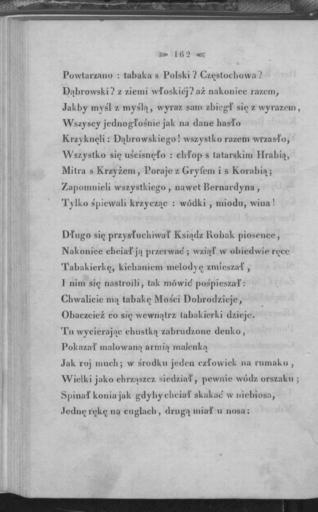 162
Powtarzano : tabaka s Polski ? Częstochowa ?
Dąbrowski ? z ziemi włoskiéj ? aż nakoniec razem,
Jakby myśl z myślą, wyraz sam zbiegł się z wyrazem,
Wszyscy jednogłośnie jak na dane hasło
Krzyknęli : Dąbrowskiego ! wszystko razem wrzasło,
Wszystko się uścisnęło : chłop s tatarskim Hrabią,
Mitra s Krzyżem, Poraje z Gryfem i s Korabią;
Zapomnieli wszystkiego, nawet Bernardyna,
Tylko śpiewali krzycząc : wódki, miodu, wina !
Długo się przysłuchiwał Ksiądz Robak piosence,
Nakoniec chciał ją przerwać ; wziął w obiedwie ręce
Tabakierkę, kichaniem melodyę zmieszał,
I nim się nastroili, tak mówić pośpieszał :
Chwalicie mą tabakę Mości Dobrodzieje,
Obaczcież co się wewnątrz tabakierki dzieje.
Tu wycierając chustką zabrudzone denko,
Pokazał malowaną armią maleńką
Jak roj much; w środku jeden człowiek na rumaku,
Wielki jako chrząszcz siedział, pewnie wódz orszaku ;
Spinał konia jak gdyby chciał skakać w niebiosa,
Jednę rękę na cuglach, drugą miał u nosa: